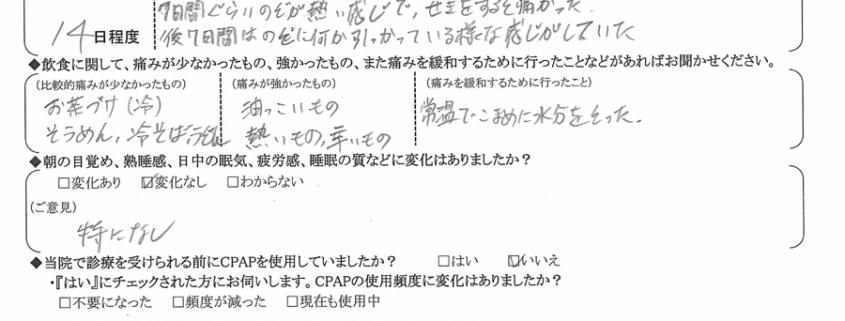 7日間ぐらいのどが熱い感じで、せきをすると痛かった.
14日程度
後7日間はのどに何か引っかかっている様な感じがしていた
◆飲食に関して、痛みが少なかったもの、強かったもの、また痛みを緩和するために行ったことなどがあればお聞かせください。
(比較的痛みが少なかったもの) (痛みが強かったもの) (痛みを緩和するために行ったこと)
お茶づけ(冷) 油っこいもの 常温でこまめに水分をとった.
そうめん,冷そば, 熱いもの,辛いもの
◆朝の目覚め、熟睡感、日中の眠気、疲労感、睡眠の質などに変化はありましたか?
□変化あり ☑変化なし □わからない
(ご意見)
特になし
◆当院で診療を受けられる前にCPAPを使用していましたか? □はい ☑いいえ
・『はい』にチェックされた方にお伺いします。CPAPの使用頻度に変化はありましたか?
□不要になった □頻度が減った □現在も使用中